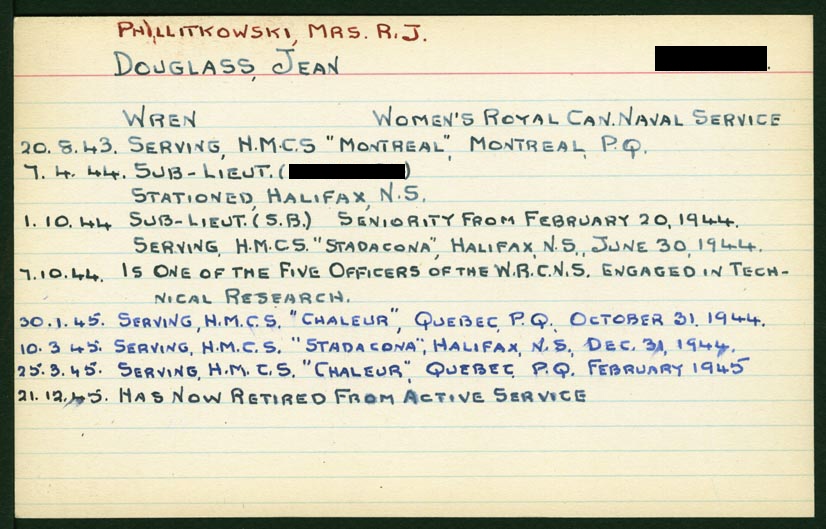 PHILLITKOWSKI, MRS. R.J.
DOUGLASS, JEAN
WREN WOMEN'S ROYAL CAN. NAVAL SERVICE
20. 8. 43. SERVING, H.M.C.S "MONTREAL", MONTREAL, P.Q.
7. 4. 44. SUB-LIEUT. ( )
STATIONED, HALIFAX, N.S.
1. 10. 44 SUB-LIEUT. (S.B.) SENIORITY FROM FEBRUARY 20, 1944.
SERVING, H.M.C.S. "STADACONA", HALIFAX, N.S., JUNE 30, 1944.
7.10.44. IS ONE OF THE FIVE OFFICERS OF THE W.R.C.N.S. ENGAGED IN TECH-
NICAL RESEARCH.
30.1.45. SERVING, H.M.C.S. "CHALEUR", QUEBEC, P.Q. OCTOBER 31, 1944.
10.3 45. SERVING, H.M.C.S. "STADACONA", HALIFAX, N.S., DEC. 31, 1944.
25.3.45. SERVING, H.M.C.S. "CHALEUR", QUEBEC, P.Q. FEBRUARY 1945
21.12.45. HAS NOW RETIRED FROM ACTIVE SERVICE